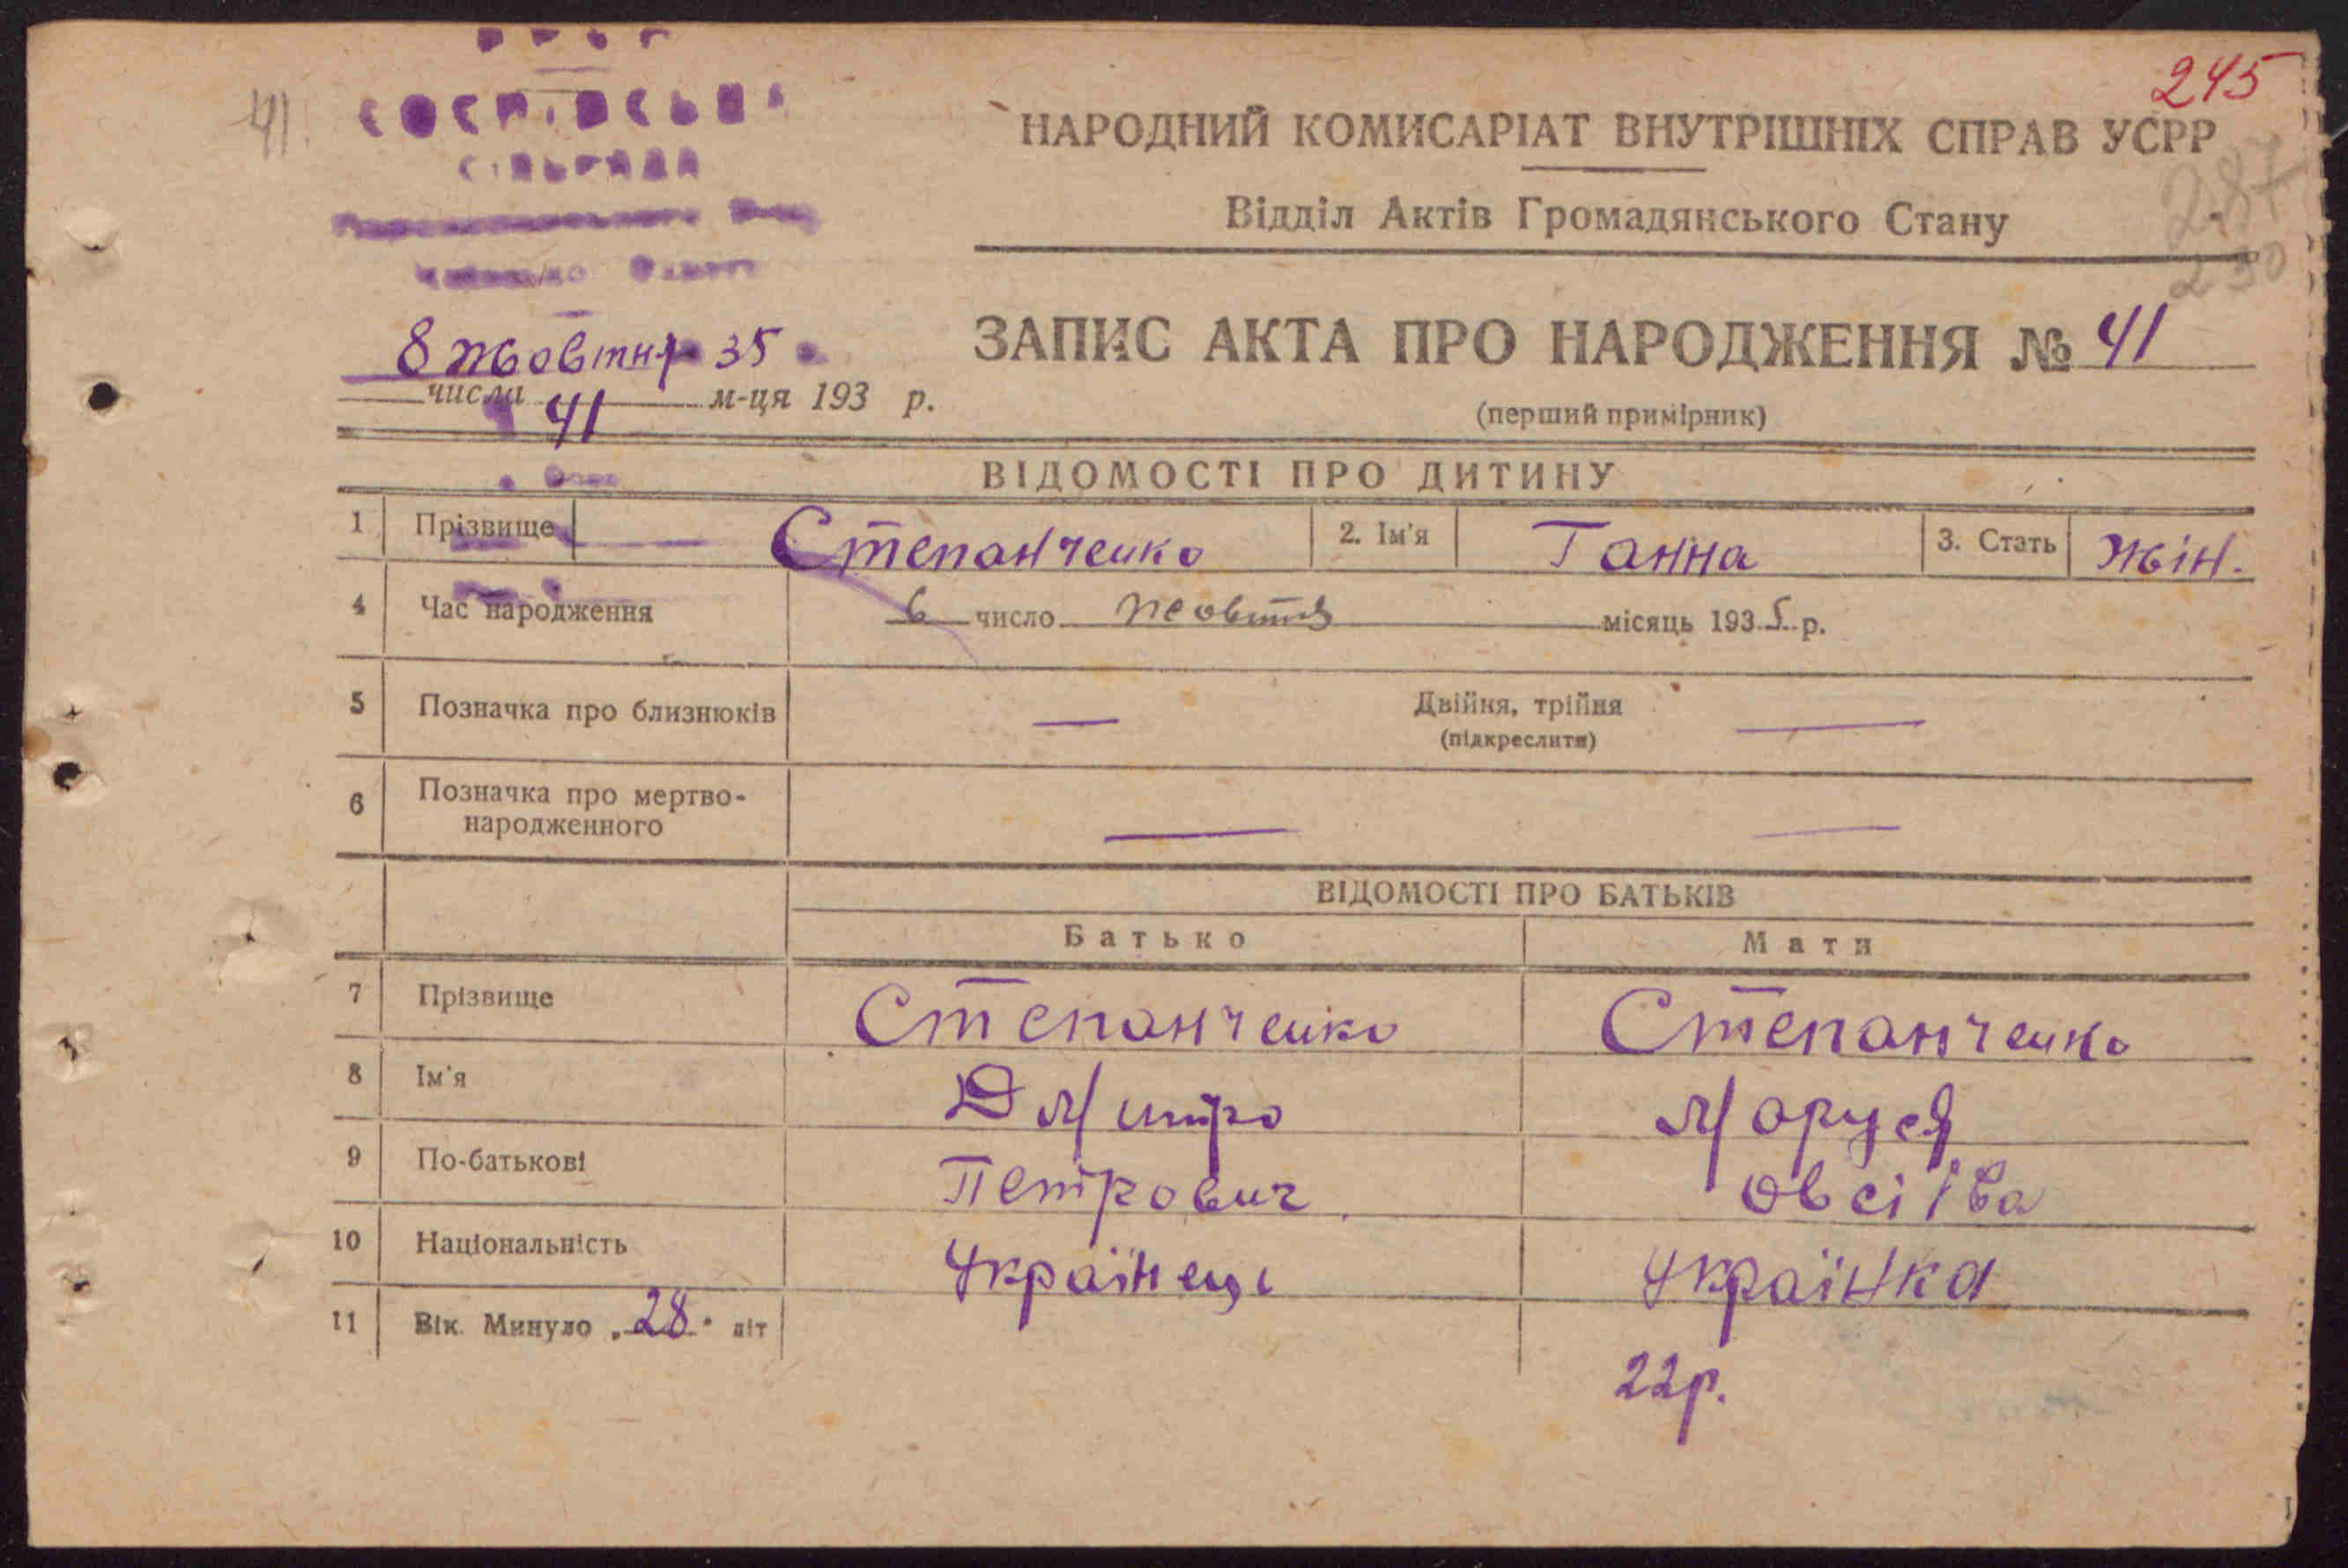 245
41.
УСРР
СОСНІВСЬКА
СІЛЬРАДА
НАРОДНИЙ КОМИСАРІАТ ВНУТРІШНІХ СПРАВ УСРР
287
Відділ Актів Громадянського Стану
230
8 жовтня 35
ЗАПИС АКТА ПРО НАРОДЖЕННЯ № 41
числа м-ця 193 р.
41
(перший примірник)
ВІДОМОСТІ ПРО ДИТИНУ
1 Прізвище Степанченко 2. Ім'я Ганна 3. Стать жін.
4 Час народження 6 число жовтня місяць 1935 р.
5 Позначка про близнюків — Двійня, трійня —
(підкреслити)
6 Позначка про мертво-
народженного — —
ВІДОМОСТІ ПРО БАТЬКІВ
Батько Мати
7 Прізвище Степанченко Степанченко
8 Ім'я Дмитро Маруся
9 По-батькові Петрович
10 Національність Українець Українка
11 Вік. Минуло „28" літ
22р.